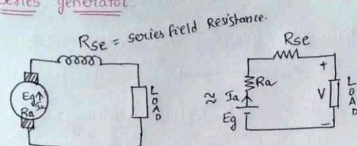 series generator
Rse = series field Resistance.
Eg Ia
Ra
LOAD
Rse
Ra
≈ Ia
Eg
+
V
-
LOAD